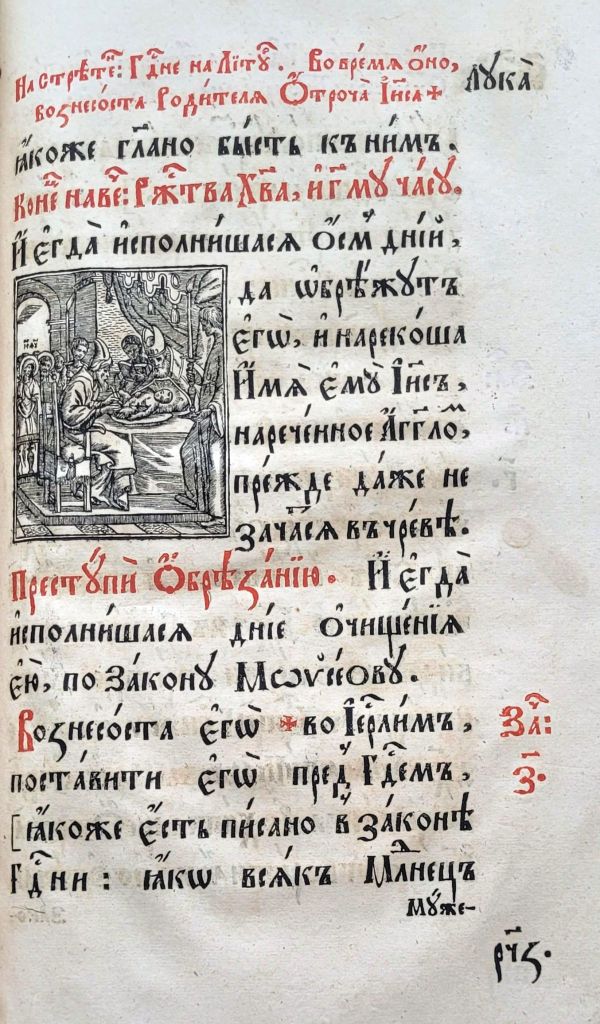 На Стрѣте҃: Гдⷭ҇не на Літу҃. Во врѣмя ѻ҆но,
вознесо́ста Роди́теля Ѻ҆троча̀ І҆и҃са ⁜
Лꙋка̀
ꙗ҆́коже гл҃ано бы́сть къ ни́мъ.
Коне҃ на ве҃: Рж҃тва Хв҃а, и҆ г҃му ча́су.
И҆ є҆гда̀ и҆сполни́шася ѻ҆́смъ дні́й,
да ѡ҆брѣ́жутъ
є҆гѡ̀, и҆ нареко́ша
И҆́мя є҆мꙋ̀ І҆и҃съ,
нарече́нное А҆́гг҃лоⷨ,
пре́жде да́же не
зача́ся въ чре́вѣ.
Престꙋпѝ Ѻ҆брѣза́нїю. И҆ є҆гда̀
и҆спо́лнишася дні́е ѻ҆чище́нїя
є҆ю̀, по зако́нꙋ Мѡѵсе́ѻвꙋ.
Вознесо́ста є҆гѡ̀ ⁜ во І҆ер҃ли́мъ,
поста́вити є҆гѡ̀ преⷣ Гдⷭ҇емъ,
[ꙗ҆́коже є҆́сть пи́сано в̾ зако́нѣ
Гдⷭ҇ни: ꙗ҆́кѡ вся́къ Млⷣнецъ
За҃:
з҃.
мꙋ́же-
рч҃з.